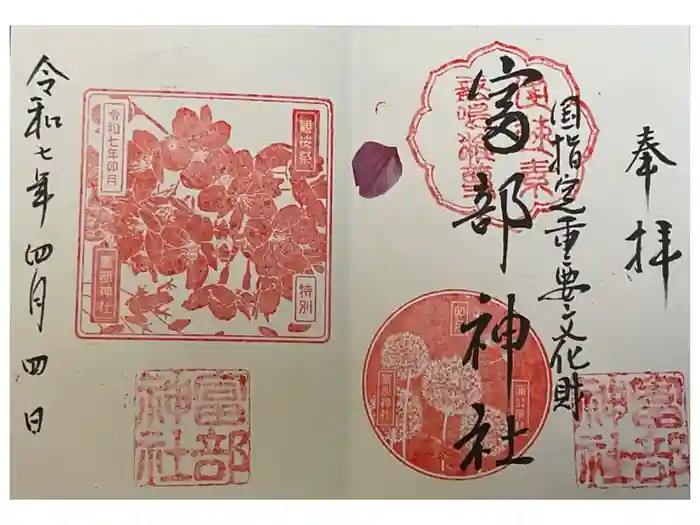 奉拝
国指定重要文化財
富部神社
卯月
富部神社
富部
神社
令和七年四月四日
観桜祭
令和七年卯月
富部神社
特別
富部
神社